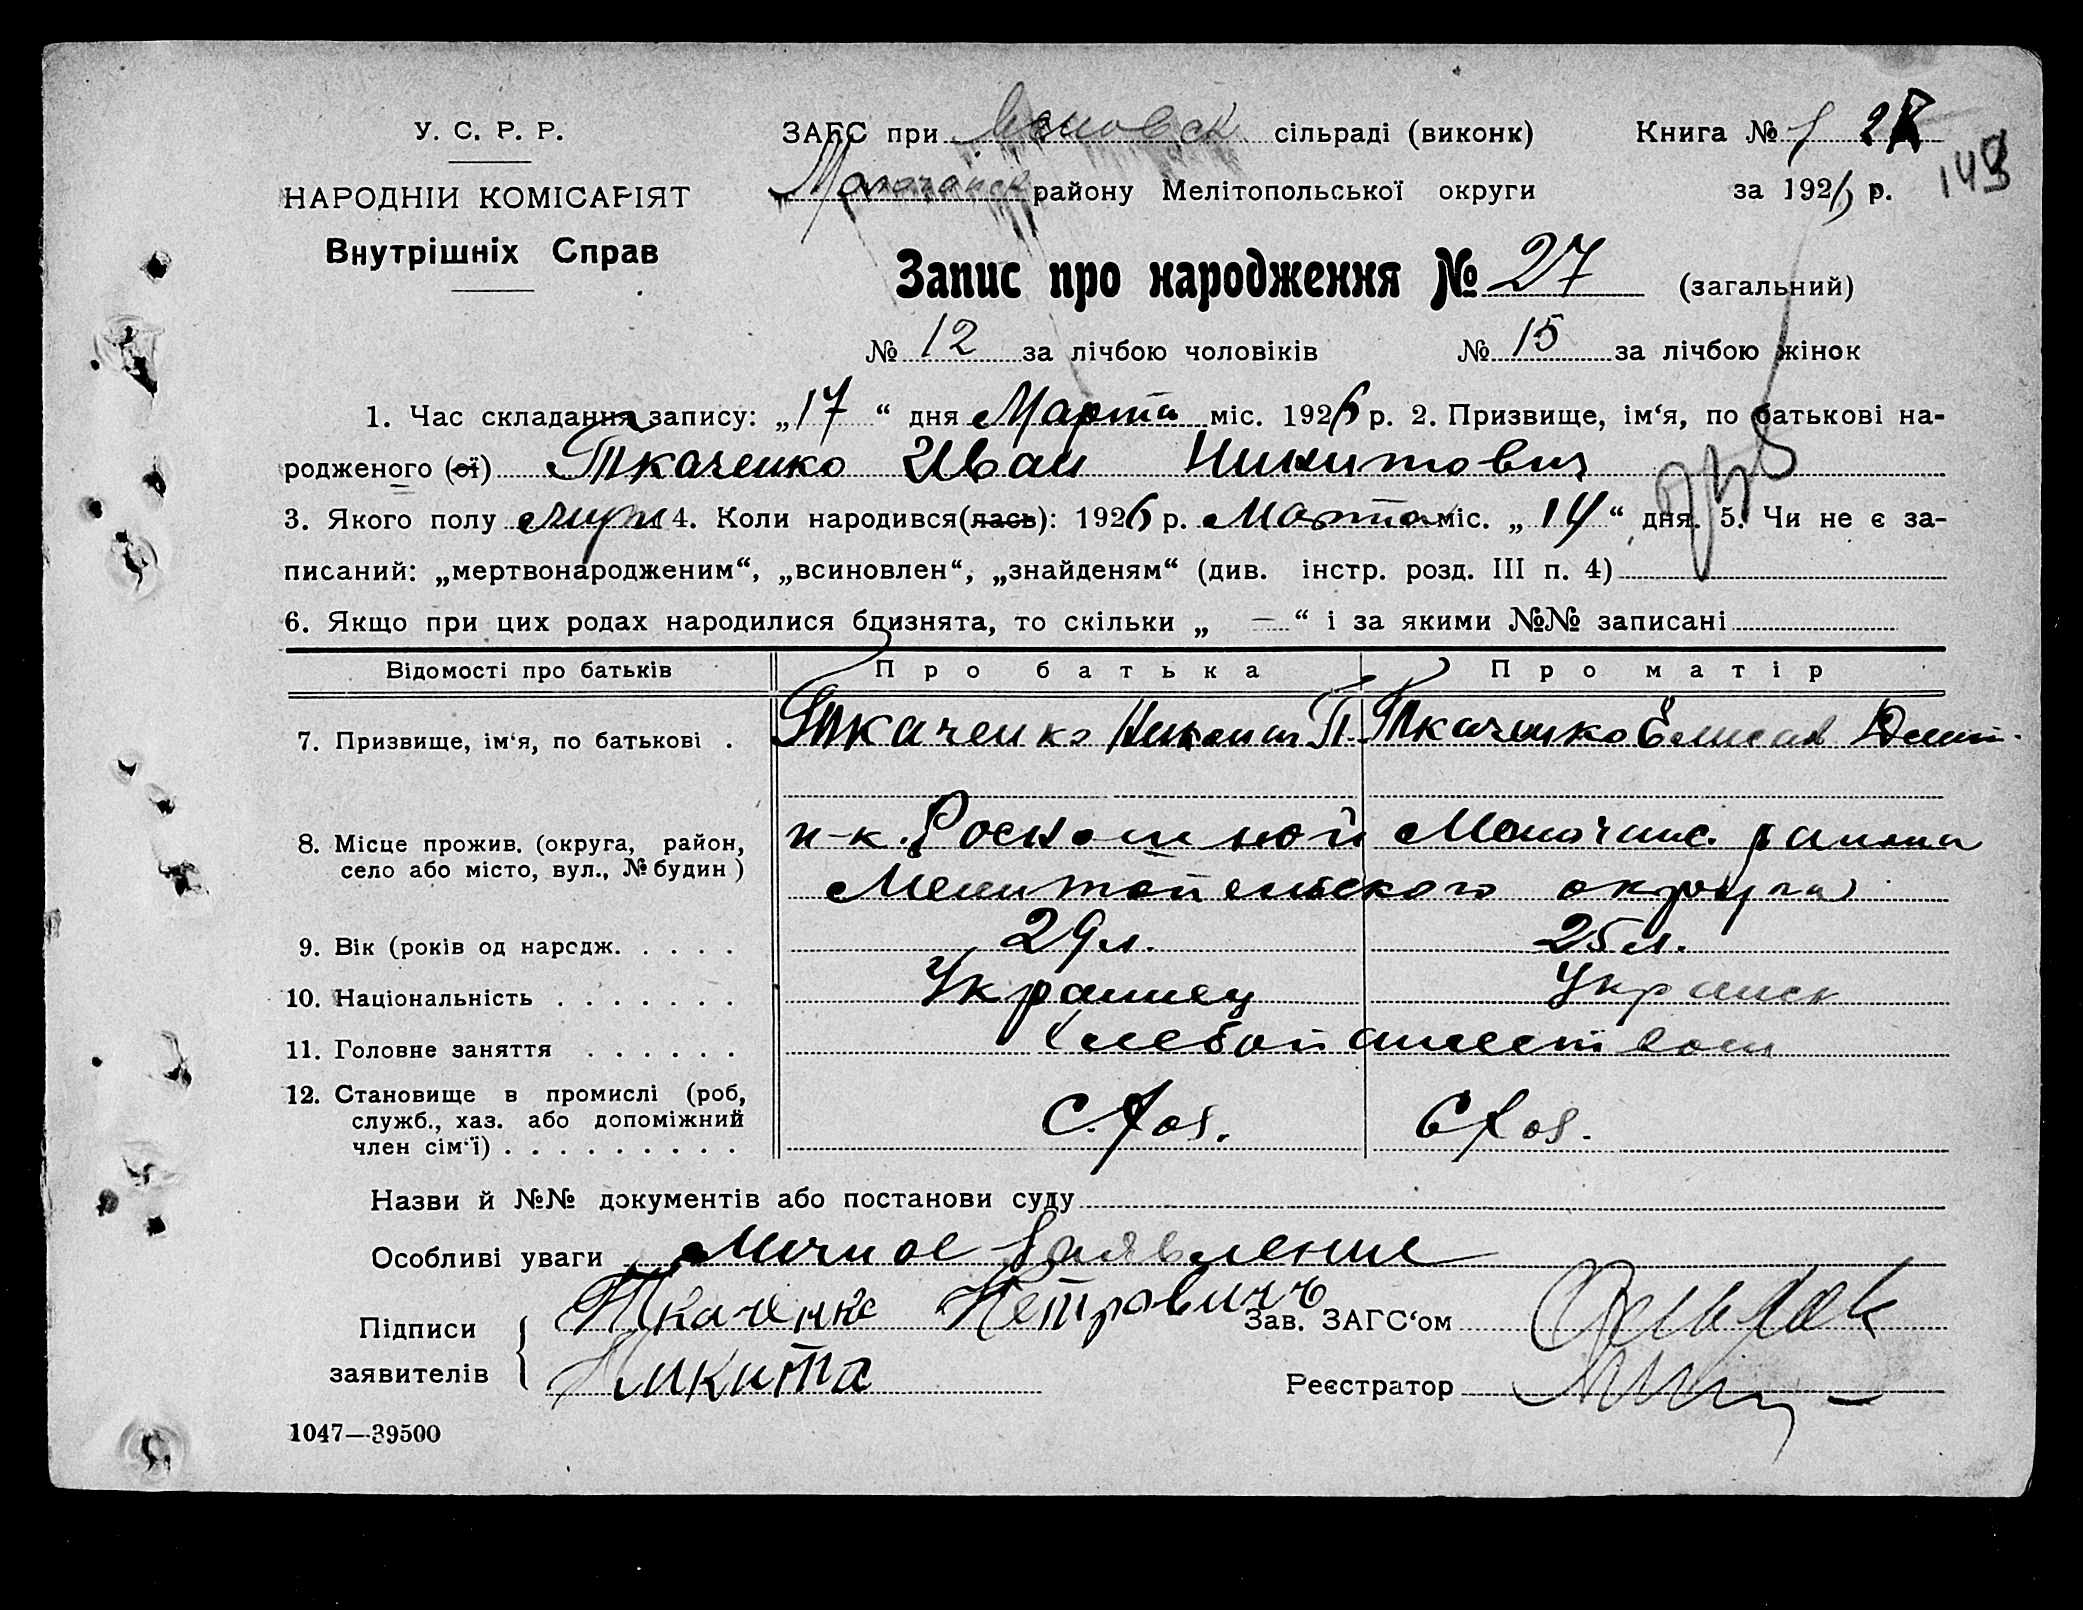 У. С. Р. Р.
НАРОДНІЙ КОМІСАРІЯТ
Внутрішніх Справ
ЗАГС при сільраді (виконк)
Молочанск району Мелітопольської округи
Книга № 1
за 1926 р.
143
Запис про народження № 27 (загальний)
№ 12 за лічбою чоловіків № 15 за лічбою жінок
1. Час складання запису: „17“ дня Марта міс. 1926 р. 2. Призвище, ім‘я, по батькові на-
родженого (ої) Ткаченко Иван Никитович
3. Якого полу муж 4. Коли народився(лась): 1926 р. Марта міс. „14“ дня. 5. Чи не є за-
писаний: „мертвонародженим“, „всиновлен“, „знайденям“ (див. інстр. розд. III п. 4)
6. Якщо при цих родах народилися близнята, то скільки „ — “ і за якими №№ записані
Відомості про батьків Про батька Про матір
7. Призвище, ім‘я, по батькові . Ткаченко Никита П. Ткаченко Елисав Дмит.
8. Місце прожив. (округа, район, село або місто, вул., № будин) п-к. Роскошной Молочанс. района
Мелитопольского округа
9. Вік (років од народж. . . . . 29 л. 25 л.
10. Національність . . . . . . . Украинец Украинск
11. Головне заняття . . . . . . Хлебопашеством
12. Становище в промислі (роб, служб., хаз. або допоміжний член сім‘ї) . . . . . . . . . С. Хоз. С Хоз.
Назви й №№ документів або постанови суду
Особливі уваги Личное Заявление
Підписи заявителів Ткаченко Петровичъ
Никита
Зав. ЗАГС‘ом
Реєстратор
1047—39500